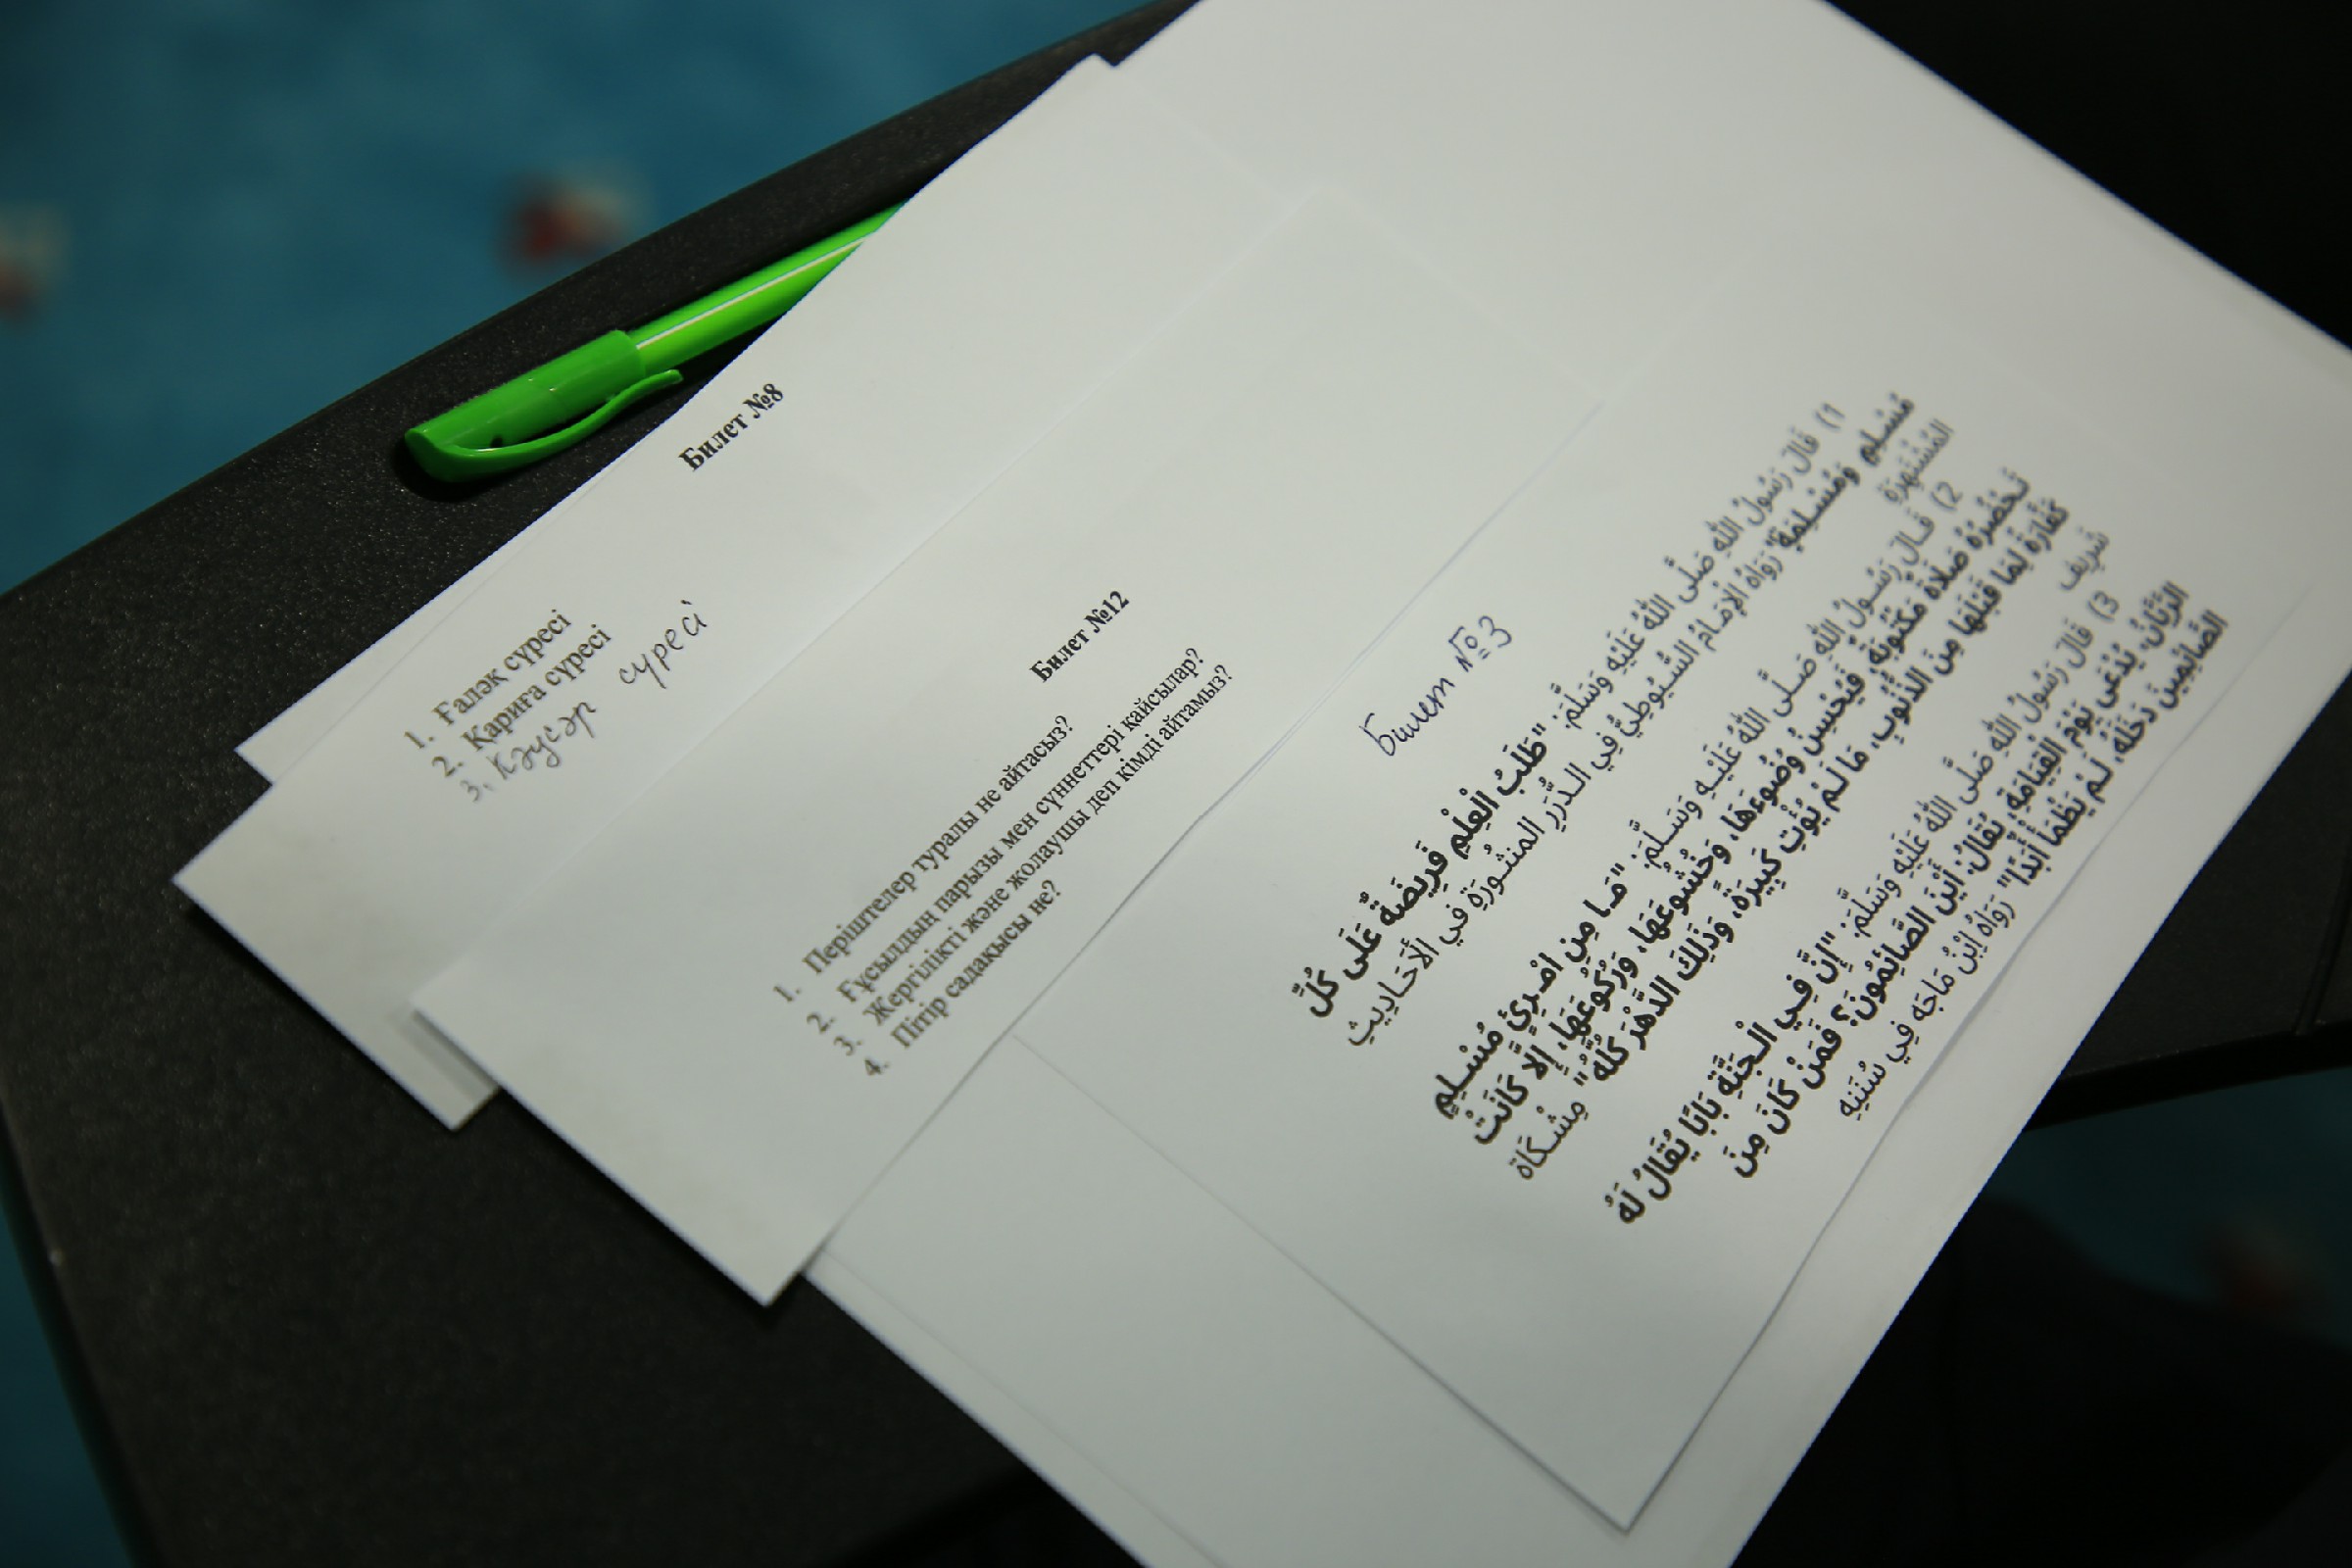 Билет №8
1. Ғаләқ сүресі
2. Қариға сүресі
3. Кәусәр сүресі
Билет №12
1. Періштелер туралы не айтасыз?
2. Ғұсылдың парызы мен сүннеттері қайсылар?
3. Жергілікті және жолаушы деп кімді айтамыз?
4. Пітір садақысы не?
Билет №3
1) قَالَ رَسُولُ اللهِ صَلَّى اللهُ عَلَيْهِ وَسَلَّمَ: "طَلَبُ الْعِلْمِ فَرِيضَةٌ عَلَى كُلِّ
مُسْلِمٍ وَمُسْلِمَةٍ" رَوَاهُ الْإِمَامُ السُّيُوطِيُّ فِي الدُّرَرِ المنثُورَةِ فِي الْأَحَادِيثِ
المُشْتَهِرَةِ
2) قَالَ رَسُولُ اللهِ صَلَّى اللهُ عَلَيْهِ وَسَلَّمَ: "مَا مِنِ امْرِئٍ مُسْلِمٍ
تَحْضُرُهُ صَلَاةٌ مَكْتُوبَةٌ، فَيُحْسِنُ وُضُوءَهَا، وَخُشُوعَهَا، وَرُكُوعَهَا، إِلَّا كَانَتْ
كَفَّارَةً لِمَا قَبْلَهَا مِنَ الذُّنُوبِ، مَا لَمْ يُؤْتِ كَبِيرَةً، وَذَلِكَ الدَّهْرَ كُلَّهُ" مِشْكَاة
شَرِيف
3) قَالَ رَسُولُ اللهِ صَلَّى اللهُ عَلَيْهِ وَسَلَّمَ: "إِنَّ فِي الْجَنَّةِ بَابًا يُقَالُ لَهُ
الرَّيَّانُ، يُدْعَى يَوْمَ الْقِيَامَةِ، يُقَالُ: أَيْنَ الصَّائِمُونَ؟ فَمَنْ كَانَ مِنَ
الصَّائِمِينَ دَخَلَهُ، لَمْ يَظْمَأْ أَبَدًا" رَوَاهُ اِبْنُ مَاجَه فِي سُنَنِهِ